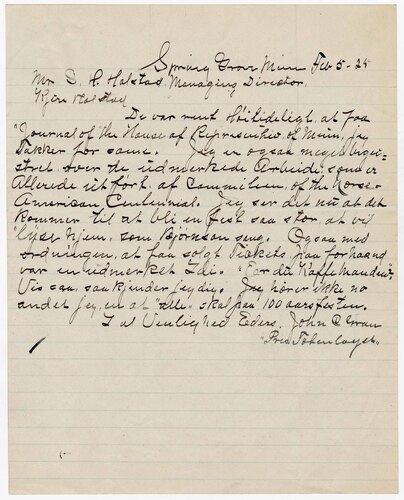 Spring Grove Minn Feb 5-25
Mr S. H. Holstad, Managing Director.
Kjere Holstad
De var rent obilideligt, at faa
"Journal of the House of Representives, of Minn, jeg
takker for samme. Jeg er ogsaa meget begei-
stret over de udmerkede Arbeide, som er
Allerede utfort, af Committeen, of the Norse-
American Centennial. Jeg ser det nu at det
kommer til at bli en fest saa stor, at vi
"lyse hjem, som Bjørnson sang. Ogsaa med
ordningen, at faa solgt Tickets, paa forhaand
var en udmerket Ide. "Er du Kaffe Manden"
Vis saa, saa kjender jeg dig. Jeg hører ikke no
andet her, en at "alle" skal paa 100 aarsfesten.
I al Venlighed Eders, John C Gran
"Pres Totenlaget"